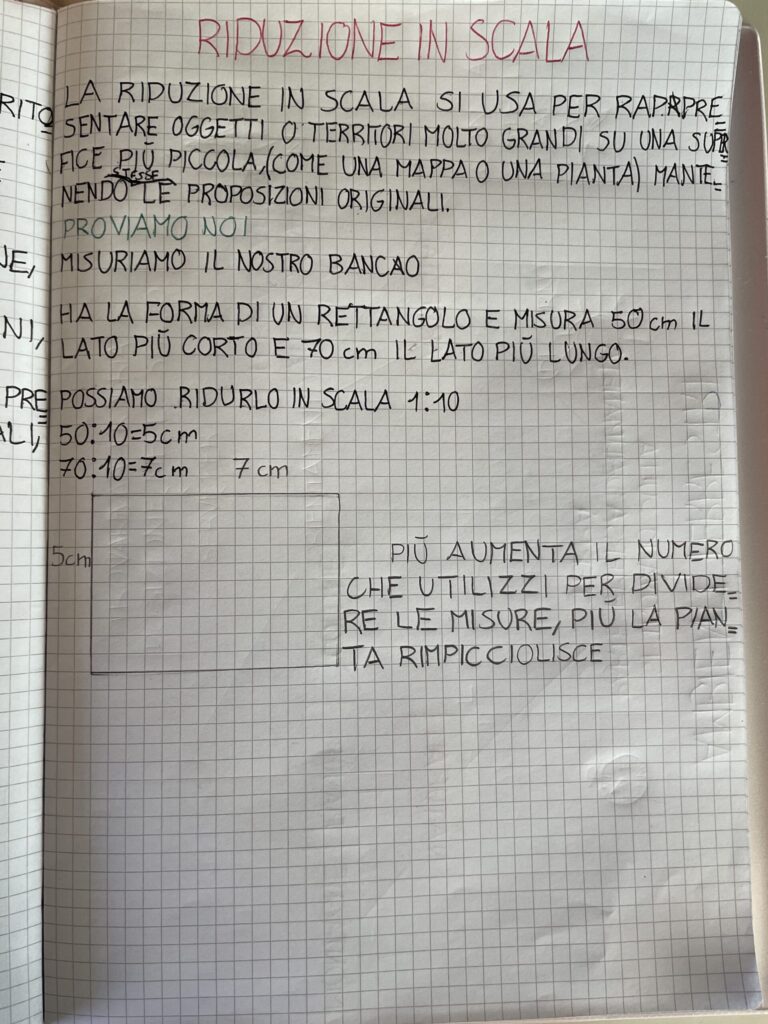 RIDUZIONE IN SCALA
LA RIDUZIONE IN SCALA SI USA PER RAPPRE
SENTARE OGGETTI O TERRITORI MOLTO GRANDI SU UNA SUPER
FICE PIŬ PICCOLA,(COME UNA MAPPA O UNA PIANTA) MANTE
STESSE
NENDO LE PROPOSIZIONI ORIGINALI.
PROVIAMO NOI
MISURIAMO IL NOSTRO BANCAO
HA LA FORMA DI UN RETTANGOLO E MISURA 50 cm IL
LATO PIŬ CORTO E 70 cm IL LATO PIŬ LUNGO.
POSSIAMO RIDURLO IN SCALA 1:10
50:10=5cm
70:10=7cm 7 cm
5cm
PIŬ AUMENTA IL NUMERO
CHE UTILIZZI PER DIVIDE
RE LE MISURE, PIŬ LA PIAN
TA RIMPICCIOLISCE
RITO
NE,
NI,
PRE
ALI,